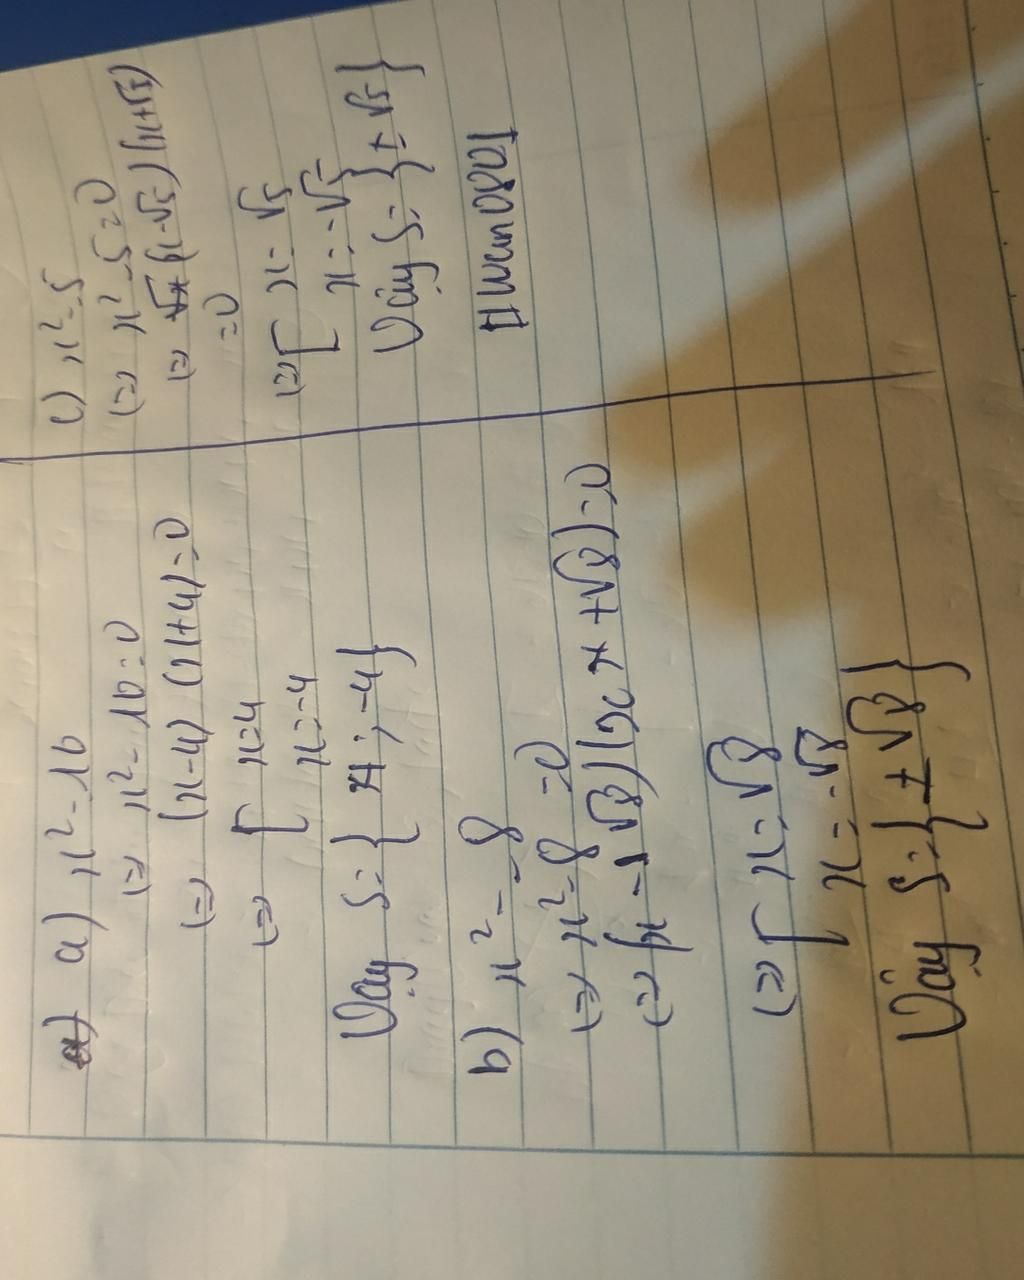 a) x² = 16
(=) x² - 16 = 0
(=) (x-4) (x+4) = 0
(=) [ x=4
x=-4
Vậy S = { 4 ; -4 }
b) x² = 8
(=) x² - 8 = 0
(=) (x - √8) (x + √8) = 0
(=) [ x = √8
x = -√8
Vậy S = { ± √8 }
c) x² = 5
(=) x² - 5 = 0
(=) (x - √5) (x + √5)
= 0
(=) [ x = √5
x = -√5
Vậy S = { ± √5 }